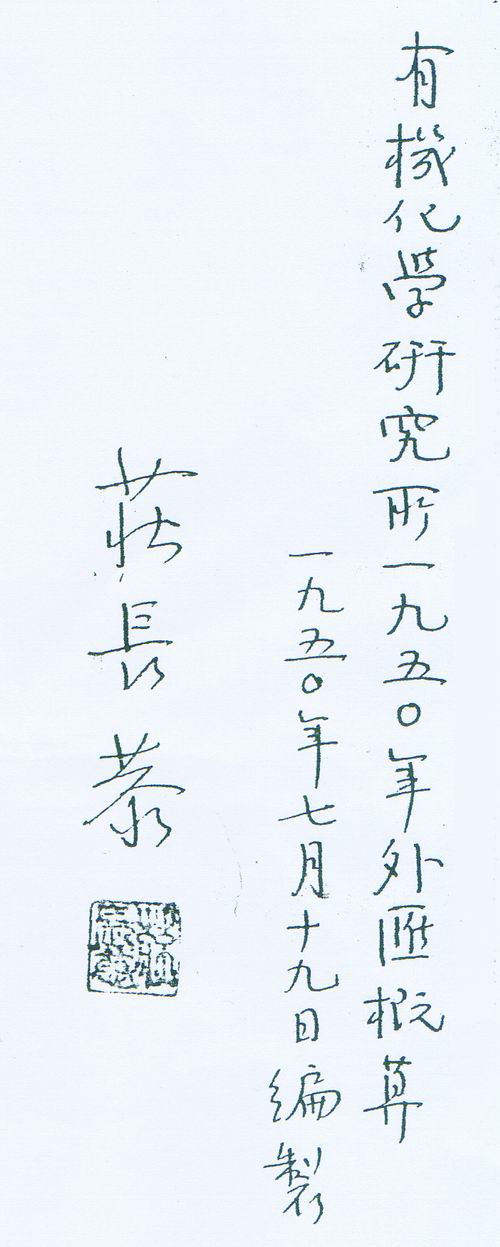 有機化學研究所一九五〇年外匯概算
一九五〇年七月十九日編製
莊長恭